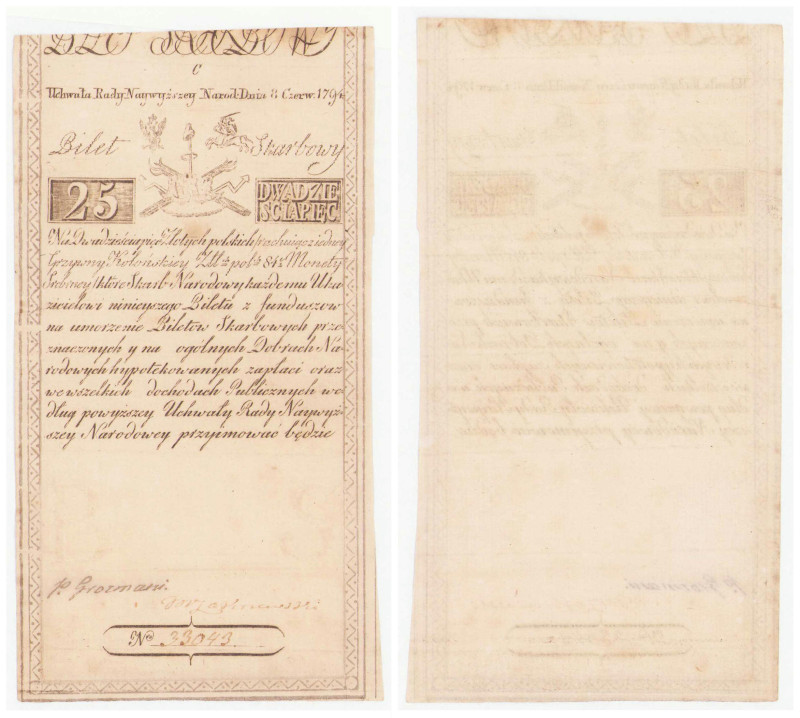 C
Uchwała Rady Naywyższey Narod: Dnia 8 Czerw. 1794
Bilet Skarbowy
25 DWADZIE
ŚCIAPIĘC
Na Dwadzieściapięć Złotych polskich rachuiąc z iedney
Grzywny Kolońskiey Zł: pol: 84½ Monety
Srebrney/które Skarb Narodowy każdemu Uka
zicielowi ninieyszego Biletu z funduszow
na umorzenie Biletów Skarbowych prze
znaczonych y na ogólnych Dobrach Na-
rodowych hypotekowanych zapłaci oraz
we wszelkich dochodach Publicznych we-
dług powyższey Uchwały Rady Naywyż-
szey Narodowey przyimować będzie
P. Grozmani.
No 33043